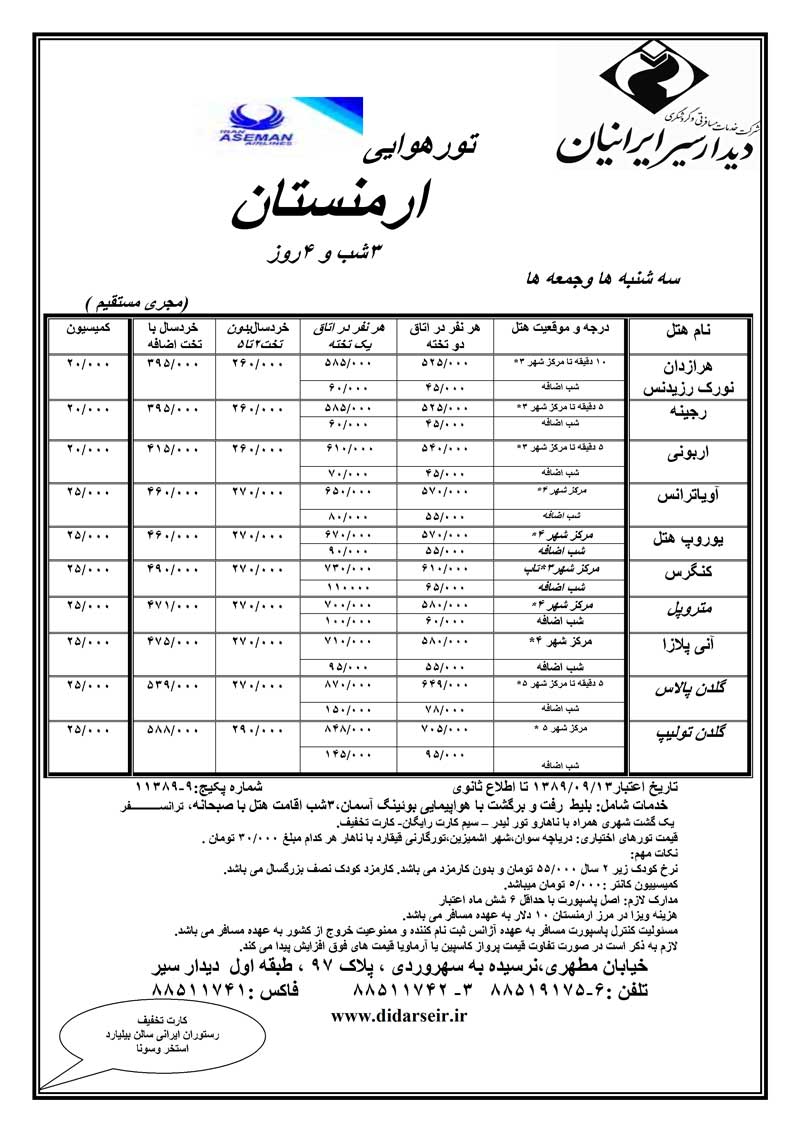 شرکت خدمات مسافرتی و گردشگری
دیدار سیر ایرانیان
IRAN
ASEMAN
AIRLINES
تور هوایی
ارمنستان
۳شب و ۴روز
سه شنبه ها وجمعه ها
(مجری مستقیم )
نام هتل درجه و موقعیت هتل هر نفر در اتاق دو تخته هر نفر در اتاق یک تخته خردسال‌بدون تخت۲تا۵ خردسال با تخت اضافه کمیسیون
هرازدان نورک رزیدنس ۱۰ دقیقه تا مرکز شهر ۳* ۵۲۵/۰۰۰ ۵۸۵/۰۰۰ ۲۶۰/۰۰۰ ۳۹۵/۰۰۰ ۲۰/۰۰۰
شب اضافه ۴۵/۰۰۰ ۶۰/۰۰۰
رجینه ۵ دقیقه تا مرکز شهر ۳* ۵۲۵/۰۰۰ ۵۸۵/۰۰۰ ۲۶۰/۰۰۰ ۳۹۵/۰۰۰ ۲۰/۰۰۰
شب اضافه ۴۵/۰۰۰ ۶۰/۰۰۰
اربونی ۵ دقیقه تا مرکز شهر ۳* ۵۴۰/۰۰۰ ۶۱۰/۰۰۰ ۲۶۰/۰۰۰ ۴۱۵/۰۰۰ ۲۰/۰۰۰
شب اضافه ۴۵/۰۰۰ ۷۰/۰۰۰
آویاترانس مرکز شهر ۴* ۵۷۰/۰۰۰ ۶۵۰/۰۰۰ ۲۷۰/۰۰۰ ۴۶۰/۰۰۰ ۲۵/۰۰۰
شب اضافه ۵۵/۰۰۰ ۸۰/۰۰۰
یوروپ هتل مرکز شهر ۴* ۵۷۰/۰۰۰ ۶۷۰/۰۰۰ ۲۷۰/۰۰۰ ۴۶۰/۰۰۰ ۲۵/۰۰۰
شب اضافه ۵۵/۰۰۰ ۹۰/۰۰۰
کنگرس مرکز شهر۳*تاپ ۶۱۰/۰۰۰ ۷۳۰/۰۰۰ ۲۷۰/۰۰۰ ۴۹۰/۰۰۰ ۲۵/۰۰۰
شب اضافه ۶۵/۰۰۰ ۱۱۰۰۰۰
متروپل مرکز شهر ۴* ۵۸۰/۰۰۰ ۷۰۰/۰۰۰ ۲۷۰/۰۰۰ ۴۷۱/۰۰۰ ۲۵/۰۰۰
شب اضافه ۶۰/۰۰۰ ۱۰۰/۰۰۰
آنی پلازا مرکز شهر ۴* ۵۸۰/۰۰۰ ۷۱۰/۰۰۰ ۲۷۰/۰۰۰ ۴۷۵/۰۰۰ ۲۵/۰۰۰
شب اضافه ۵۵/۰۰۰ ۹۵/۰۰۰
گلدن پالاس ۵ دقیقه تا مرکز شهر ۵* ۶۴۹/۰۰۰ ۸۷۰/۰۰۰ ۲۷۰/۰۰۰ ۵۳۹/۰۰۰ ۲۵/۰۰۰
شب اضافه ۷۸/۰۰۰ ۱۵۰/۰۰۰
گلدن تولیپ مرکز شهر ۵ * ۷۰۵/۰۰۰ ۸۴۸/۰۰۰ ۲۹۰/۰۰۰ ۵۸۸/۰۰۰ ۲۵/۰۰۰
شب اضافه ۹۵/۰۰۰ ۱۴۵/۰۰۰
تاریخ اعتبار۱۳۸۹/۰۹/۱۳ تا اطلاع ثانوی شماره پکیج:۹-۱۱۳۸۹
خدمات شامل: بلیط رفت و برگشت با هواپیمایی بوئینگ آسمان،۳شب اقامت هتل با صبحانه، ترانسـفر
یک گشت شهری همراه با ناهارو تور لیدر – سیم کارت رایگان- کارت تخفیف.
قیمت تورهای اختیاری: دریاچه سوان،شهر اشمیزین،تورگارنی قیقارد با ناهار هر کدام مبلغ ۳۰/۰۰۰ تومان .
نکات مهم:
نرخ کودک زیر ۲ سال ۵۵/۰۰۰ تومان و بدون کارمزد می باشد. کارمزد کودک نصف بزرگسال می باشد.
کمیسییون کانتر :۵/۰۰۰ تومان میباشد.
مدارک لازم: اصل پاسپورت با حداقل ۶ شش ماه اعتبار
هزینه ویزا در مرز ارمنستان ۱۰ دلار به عهده مسافر می باشد.
مسئولیت کنترل پاسپورت مسافر به عهده آژانس ثبت نام کننده و ممنوعیت خروج از کشور به عهده مسافر می باشد.
لازم به ذکر است در صورت تفاوت قیمت پرواز کاسپین یا آرماویا قیمت های فوق افزایش پیدا می کند.
خیابان مطهری،نرسیده به سهروردی ، پلاک ۹۷ ، طبقه اول دیدار سیر
تلفن :۶-۸۸۵۱۹۱۷۵ ۳- ۸۸۵۱۱۷۴۲ فاکس :۸۸۵۱۱۷۴۱
www.didarseir.ir
کارت تخفیف
رستوران ایرانی سالن بیلیارد
استخر وسونا